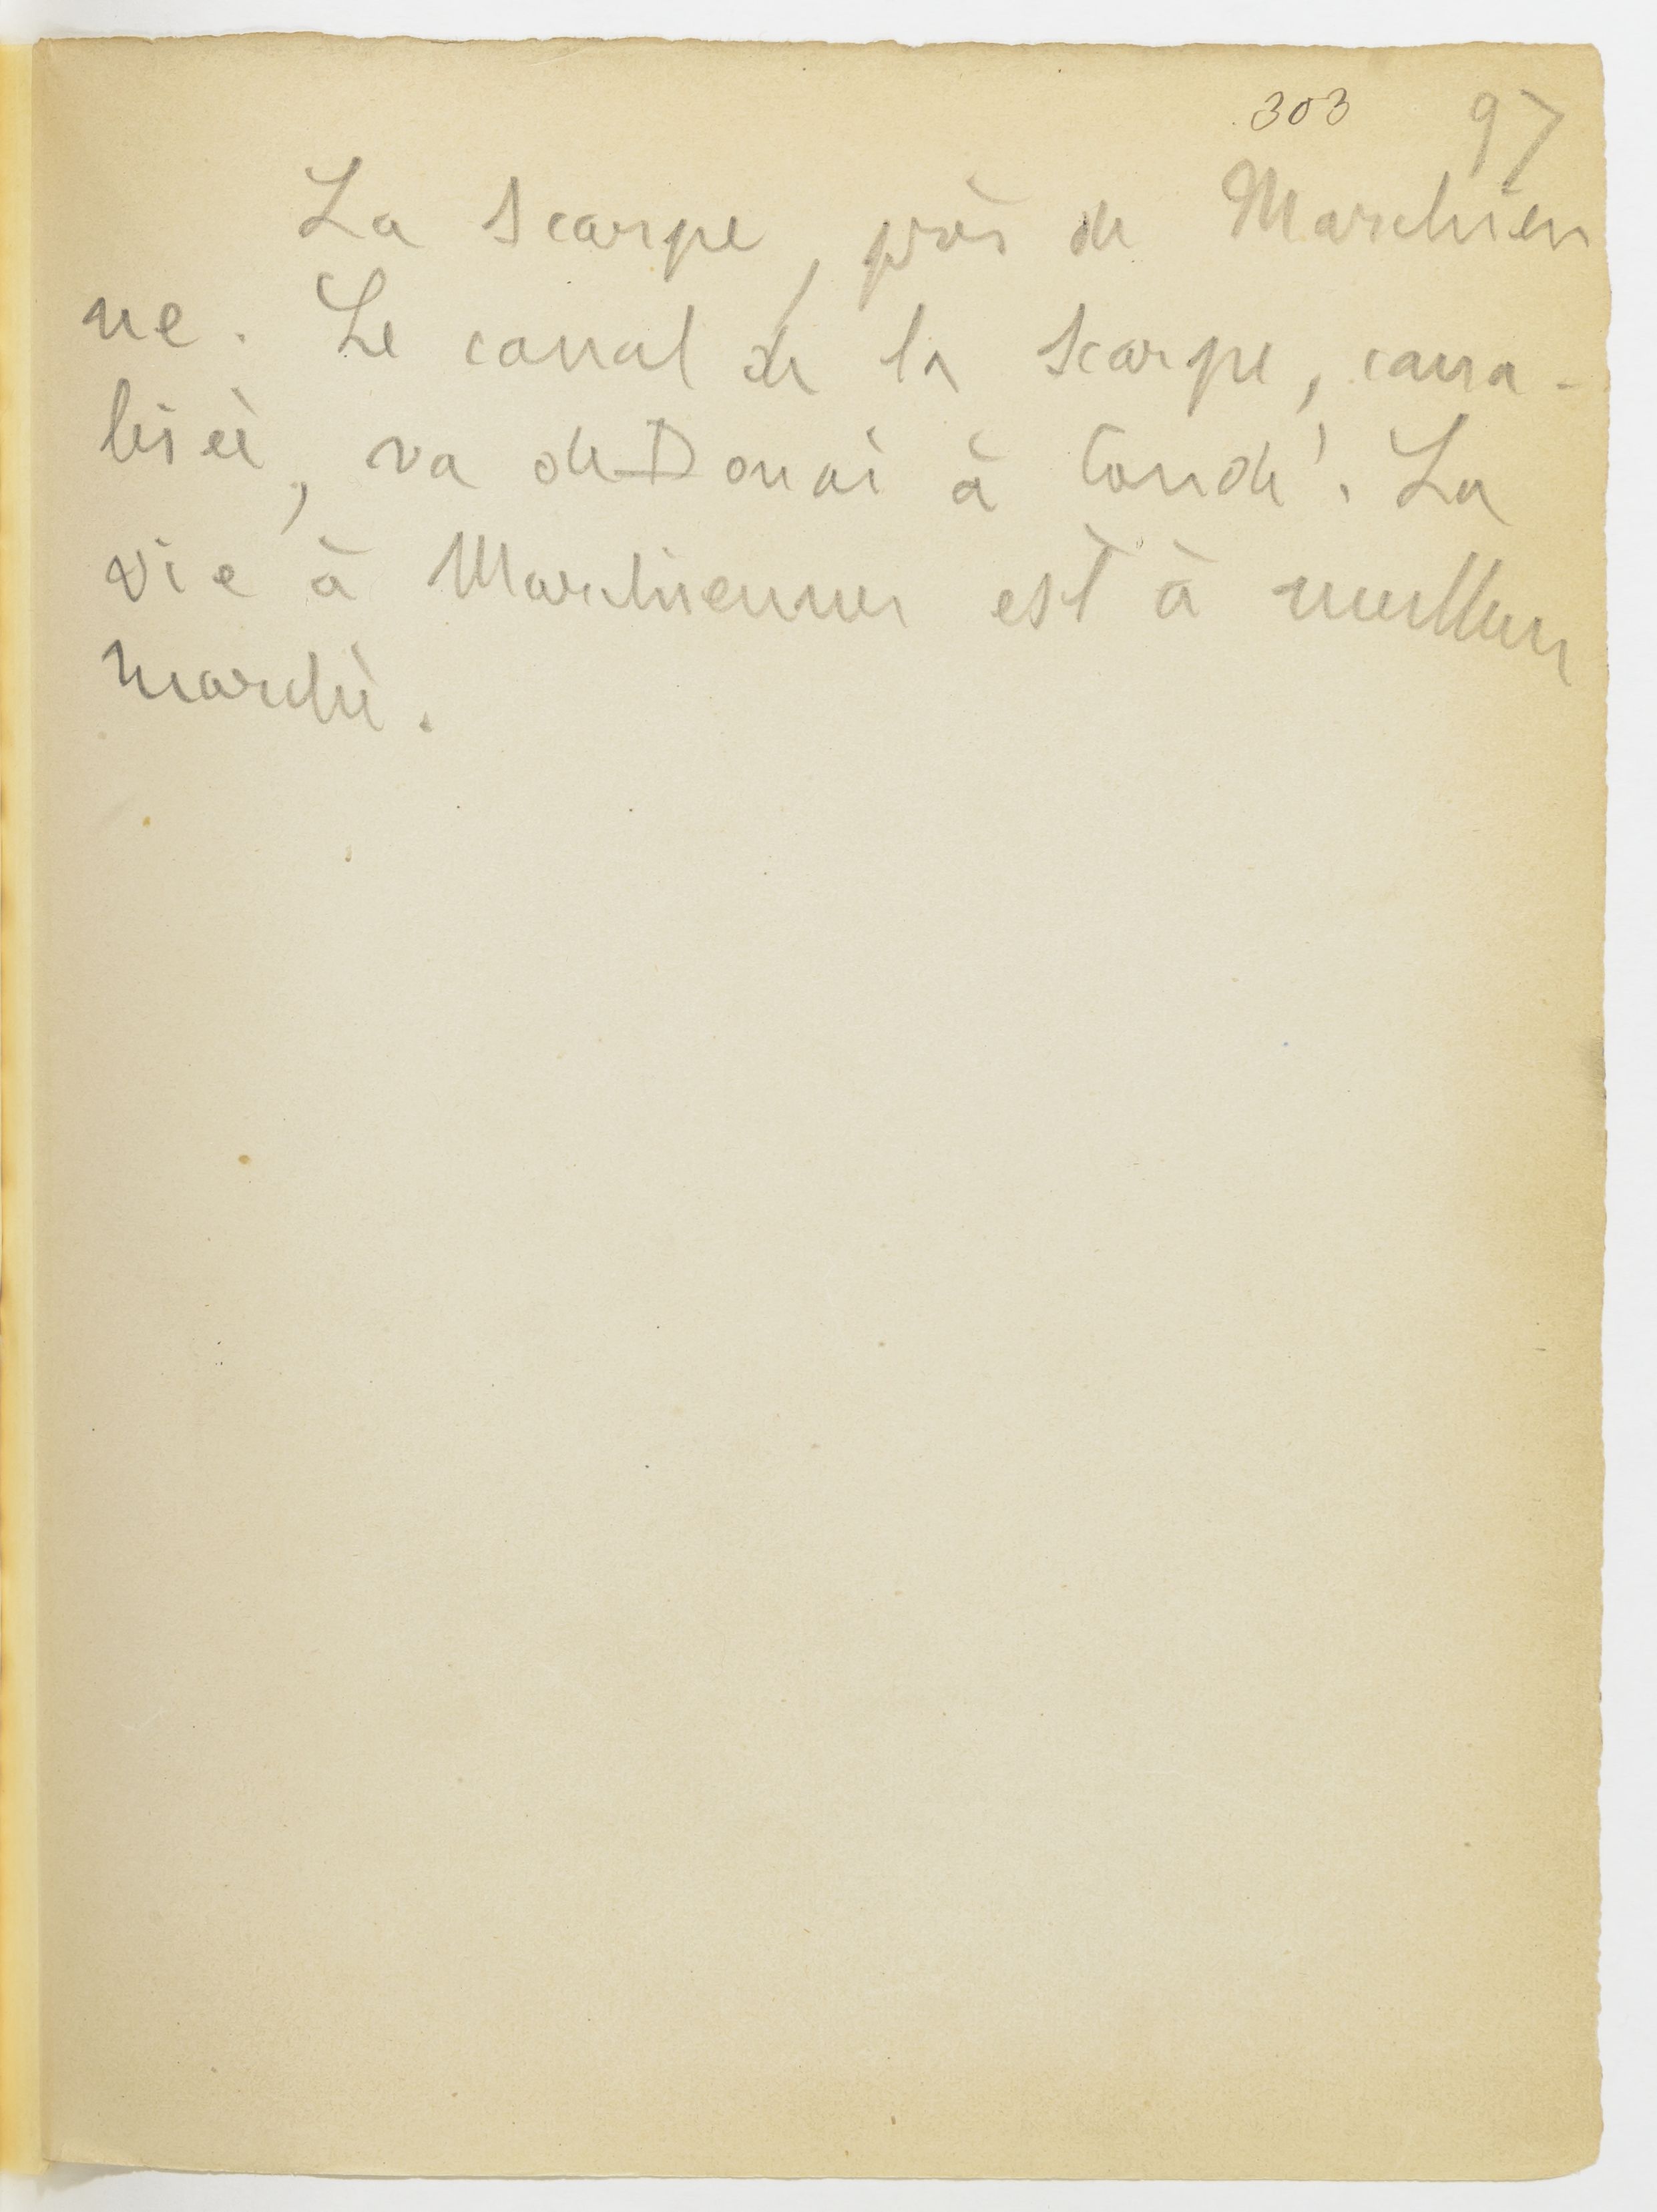 303 97
La Scarpe, près de Marchien
ne. Le canal de la Scarpe, cana-
lisée, va de Douai à Condé. La
vie à Marchiennes est à meilleur
marché.